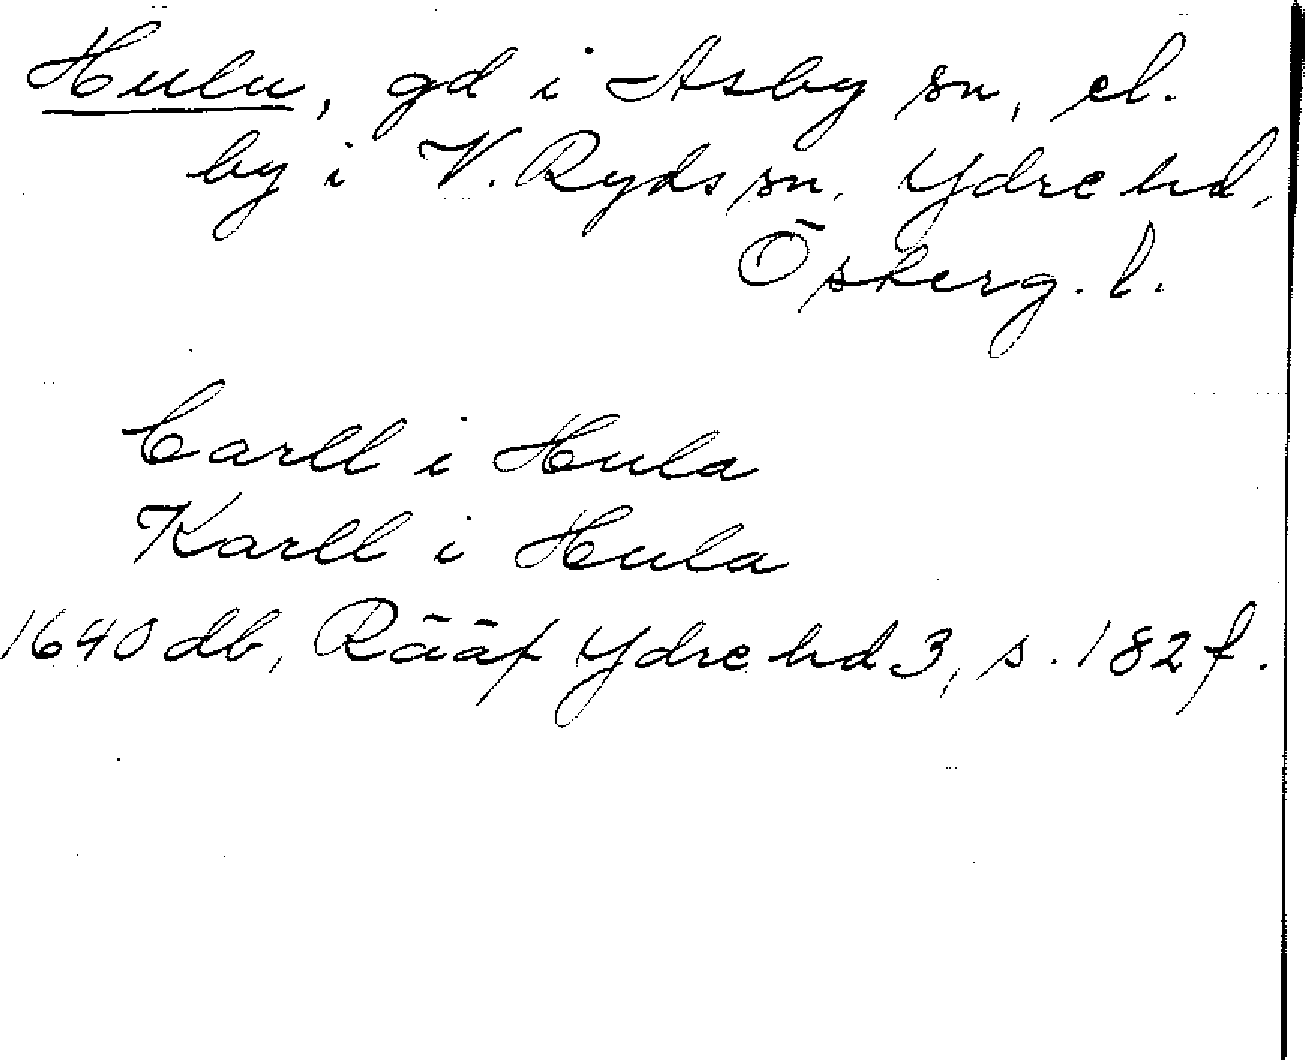 Hulu, gd i Asby sn, el.
by i V. Ryds sn. Ydre hd,
Österg. l.
Carll i Hula
Karll i Hula
1640 db, Rääf Ydre hd 3, s. 182 f.